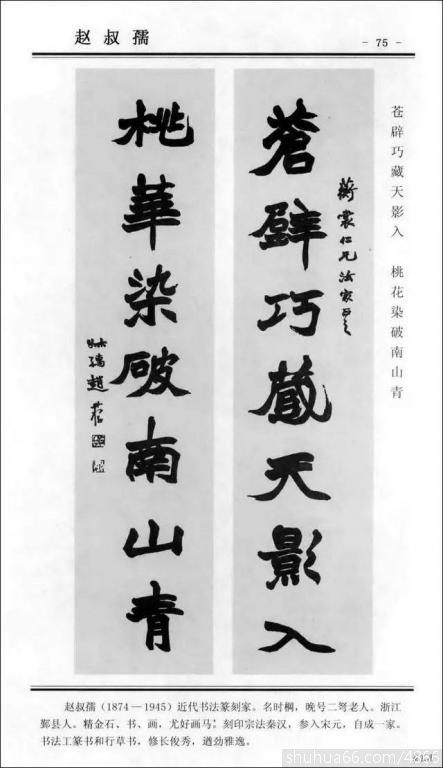 赵叔孺
- 75 -
苍辟巧藏天影入 桃花染破南山青
裳仁兄法家正之
蒼壁巧藏天影入
桃華染破南山青
叔孺趙
赵叔孺（1874—1945）近代书法篆刻家。名时棡，晚号二弩老人。浙江
鄞县人。精金石、书、画，尤好画马；刻印宗法秦汉，参入宋元，自成一家。
书法工篆书和行草书，修长俊秀，遒劲雅逸。
shuhua66.com/4866